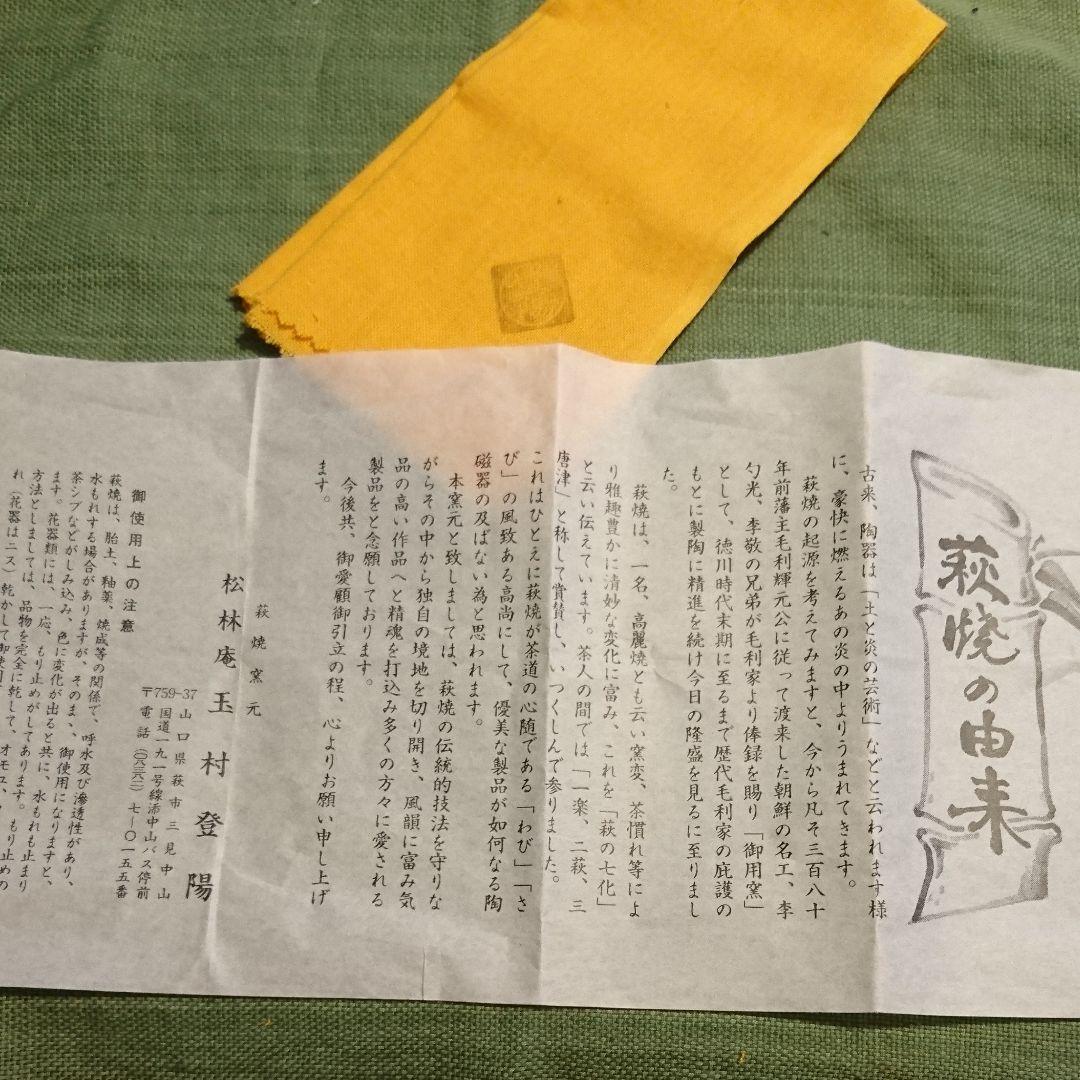 萩焼の由来
古来、陶器は「土と炎の芸術」などと云われます様
に、豪快に燃えるあの炎の中よりうまれてきます。
萩焼の起源を考えてみますと、今から凡そ三百八十
年前藩主毛利輝元公に従って渡来した朝鮮の名工、李
勺光、李敬の兄弟が毛利家より俸録を賜り「御用窯」
として、徳川時代末期に至るまで歴代毛利家の庇護の
もとに製陶に精進を続け今日の隆盛を見るに至りまし
た。
萩焼は、一名、高麗焼とも云い窯変、茶慣れ等によ
り雅趣豊かに清妙な変化に富み、これを「萩の七化」
と云い伝えています。茶人の間では「一楽、二萩、三
唐津」と称して賞賛し、いつくしんで参りました。
これはひとえに萩焼が茶道の心随である「わび」「さ
び」の風致ある高尚にして、優美な製品が如何なる陶
磁器の及ばない為と思われます。
本窯元と致しましては、萩焼の伝統的技法を守りな
がらその中から独自の境地を切り開き、風韻に富み気
品の高い作品へと精魂を打込み多くの方々に愛される
製品をと念願しております。
今後共、御愛顧御引立の程、心よりお願い申し上げ
ます。
萩焼窯元
松林庵玉村登陽
〒759-37 山口県萩市三見中山
国道一九一号線添中山バス停前
電話(〇八三八二)七-〇一五五番
御使用上の注意
萩焼は、胎土、釉薬、焼成等の関係で、呼水及び滲透性があり、
水もれする場合がありますが、そのまゝ、御使用になりますと、
茶シブなどがしみ込み、色に変化が出ると共に、水もれも止まり
ます。花器類には、一応、もり止めがしてあります。もり止めの
方法としましては、品物を完全に乾して、オモユ、
れ(花器はニス)乾かして御使